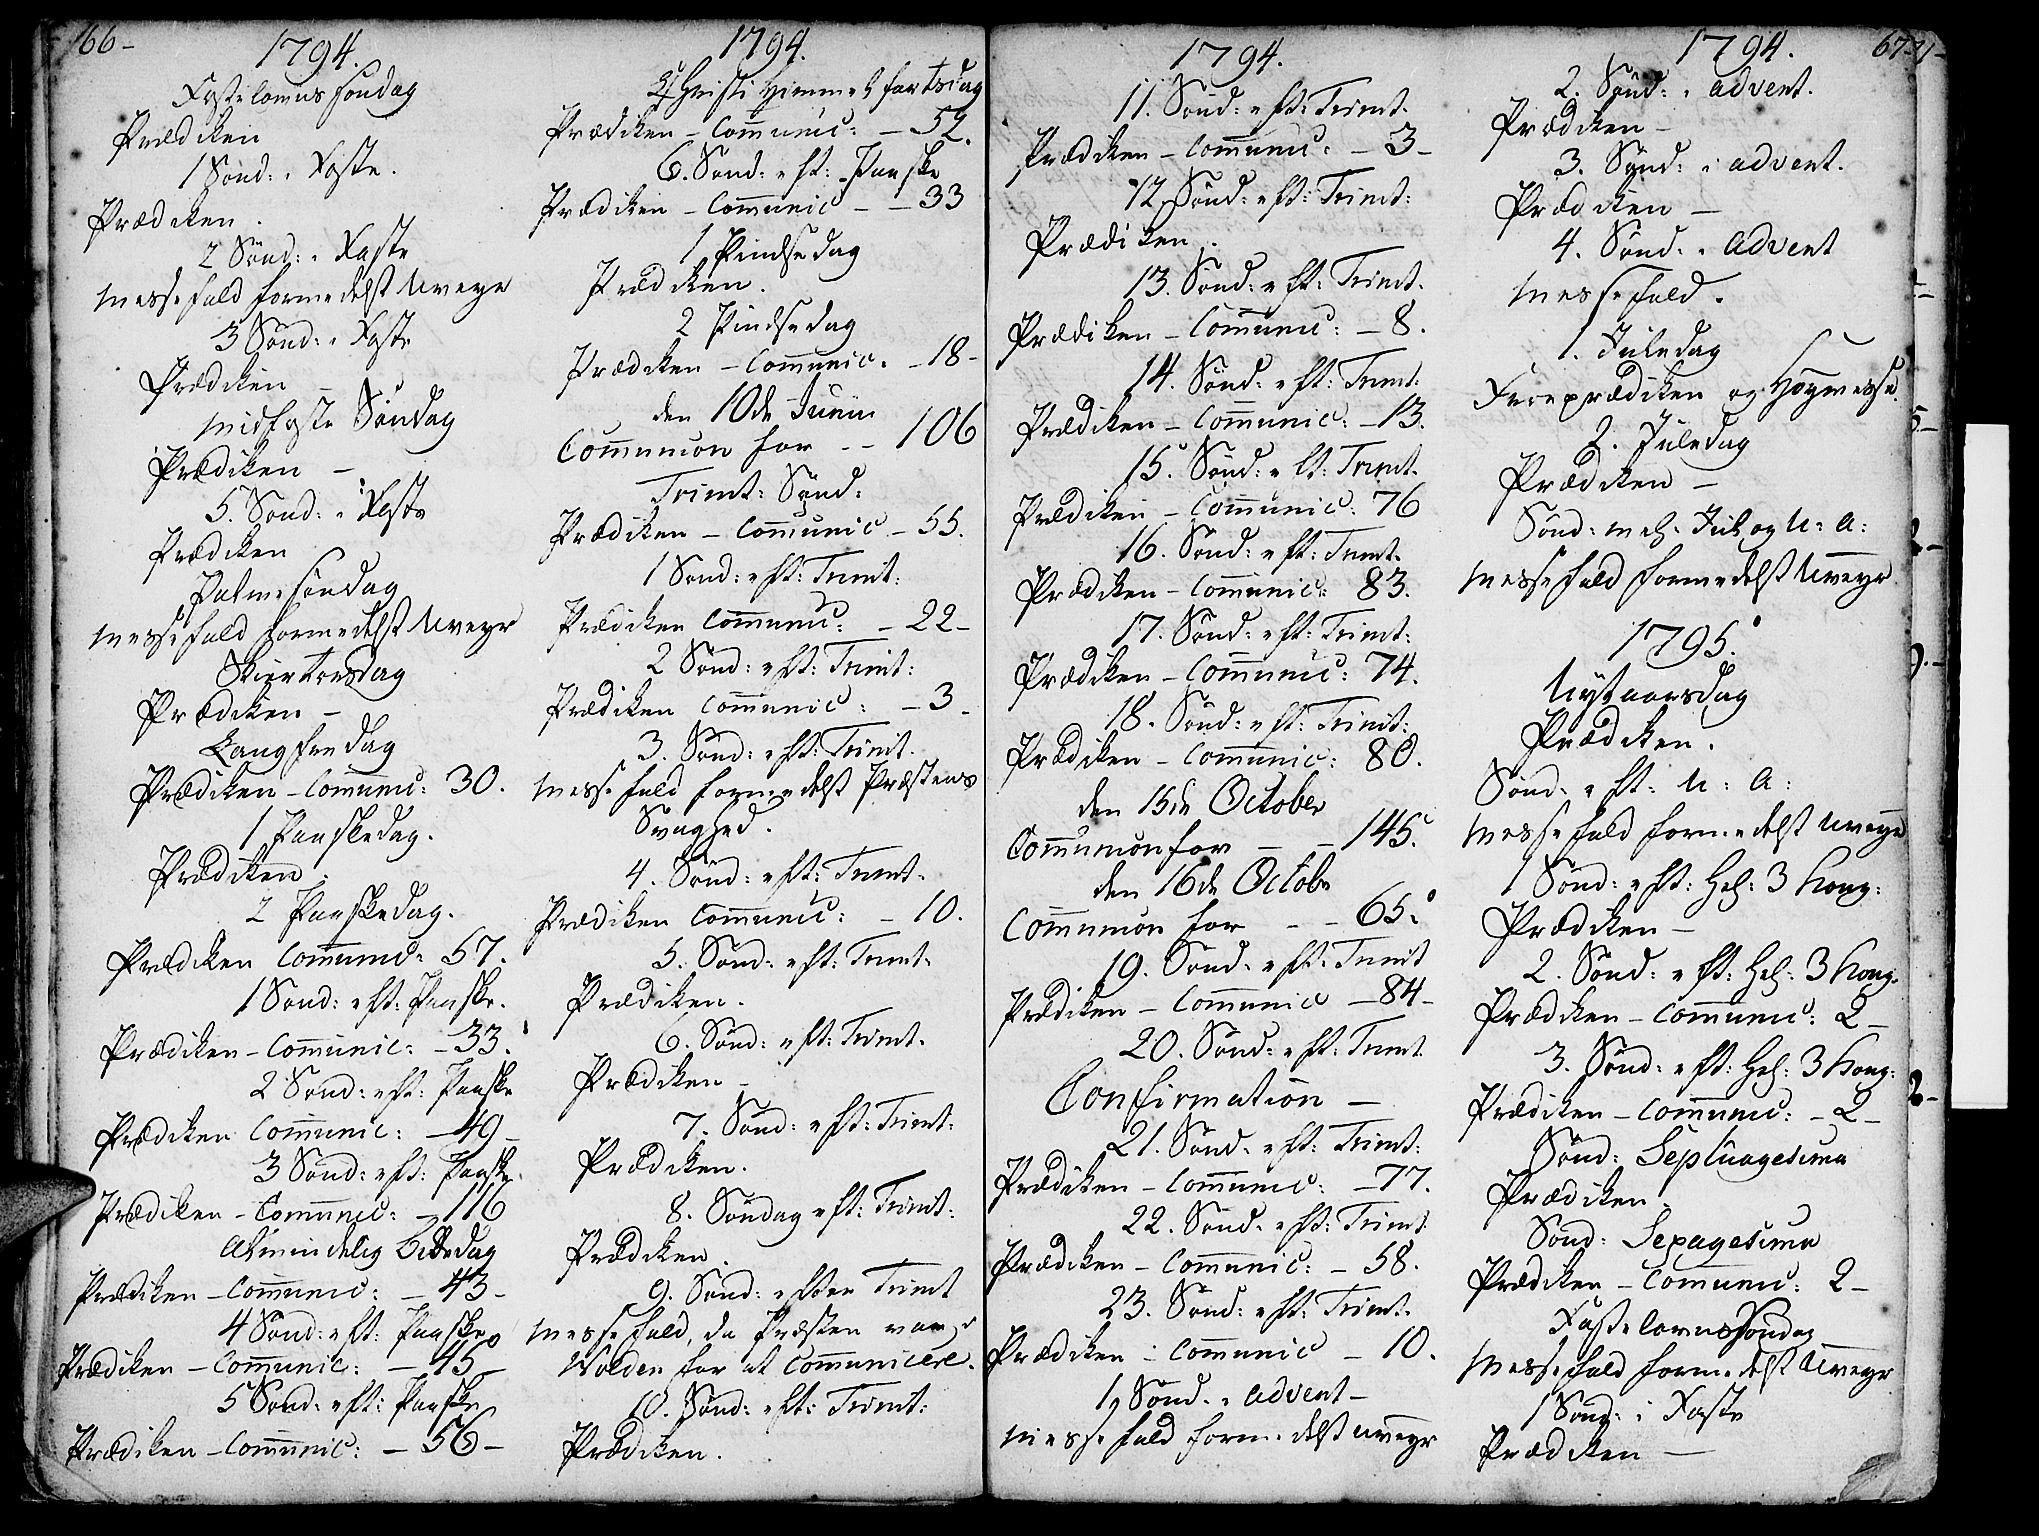 166-
1794.
Fastelavns søndag
Prædiken
1 Sønd: i Faste.
Prædiken.
2 Sønd: i Faste
Messefald formedelst Uveyr
3 Sønd: i Faste
Prædiken –
Midfaste Søndag
Prædiken –
5. Sønd: i Faste
Prædiken
Palmesøndag
Messefald formedelst Uveyr
Skiertorsdag
Prædiken –
Langfredag
Prædiken – Communic: 30.
1 Paaskedag.
Prædiken.
2 Paaskedag.
Prædiken Communic: 57.
1 Sønd: eft: Paaske.
Prædiken – Communic: – 33.
2 Sønd: eft: Paaske
Prædiken Communic: – 49 –
3 Sønd: eft: Paaske.
Prædiken – Communic: – 116
Almindelig Bededag
Prædiken – Communic: – 43 –
4 Sønd: eft: Paaske
Prædiken – Communic: – 45 –
5 Sønd: eft: Paaske
Prædiken – Communic: – 56 –
1794.
Christi Himmelfartsdag
Prædiken – Communic: – 52.
6. Sønd: eft: Paaske
Prædiken – Communic – – 33
1 Pindsedag
Prædiken.
2 Pindsedag
Prædiken – Communic. – 18 –
den 10de Junii
Communion for – – 106
Trinit: Sønd:
Prædiken – Communic – 55.
1 Sønd: eft: Trinit:
Prædiken Communic: – 22 –
2 Sønd: eft: Trinit:
Prædiken Communic: – 3 –
3. Sønd: eft: Trinit.
Messefald formedelst Præstens
Svaghed.
4. Sønd: eft: Trinit.
Prædiken Communic: – 10.
5. Sønd: eft: Trinit.
Prædiken.
6. Sønd: eft: Trinit.
Prædiken –
7. Sønd: eft: Trinit:
Prædiken.
8. Søndag eft: Trinit:
Prædiken.
9. Sønd: efter Trinit
Messefald, da Præsten var i
Volden for at Communicere.
10. Sønd: eft: Trinit:
Prædiken.
1794.
11. Sønd: eft: Trinit.
Prædiken – Communic: – 3 –
12 Sønd: eft: Trinit:
Prædiken.
13. Sønd: eft: Trinit.
Prædiken – Communic: – 8.
14. Sønd: eft: Trinit:
Prædiken – Communic: – 13.
15. Sønd: eft: Trinit.
Prædiken – Communic: 76
16. Sønd: eft: Trinit.
Prædiken – Communic: 83.
17. Sønd: eft: Trinit:
Prædiken – Communic: 74.
18. Sønd: eft: Trinit:
Prædiken – Communic: 80.
den 15de October
Communion for – – 145.
den 16de Octobr
Communion for – – 65.
19. Sønd. eft: Trinit
Prædiken – Communic – 84 –
20. Sønd: eft: Trinit.
Confirmation –
21. Sønd. eft: Trinit:
Prædiken – Communic: – 77.
22. Sønd. eft: Trinit
Prædiken – Communic: – 58.
23. Sønd: eft: Trinit.
Prædiken – Communic – 10.
1, Sønd: i Advent –
Messefald formedelst Uveyr
1794.
2. Sønd: i Advent.
Prædiken –
3. Sønd: i Advent.
Prædiken –
4. Sønd: i Advent
Messefald.
1. Juledag
Froeprædiken og Høymesse.
2. Juledag
Prædiken –
Sønd: mel. Juul og N: A:
Messefald formedelst Uveyr
1795.
Nytaarsdag
Prædiken.
Sønd: eft: N: A:
Messefald formedelst Uveyr
1 Sønd: eft: Hel: 3 Kong:
Prædiken –
2. Sønd: eft: Hel: 3 Kong.
Prædiken – Communic: 2 –
3. Sønd: eft: Hel: 3 Kong:
Prædiken – Communic: – 2 –
Sønd: Septuagesima
Prædiken.
Sønd: Sexagesima
Prædiken – Communic: 2 –
Fastelavnssøndag
Messefald formedelst Uveyr
1 Sønd: i Faste
Prædiken –